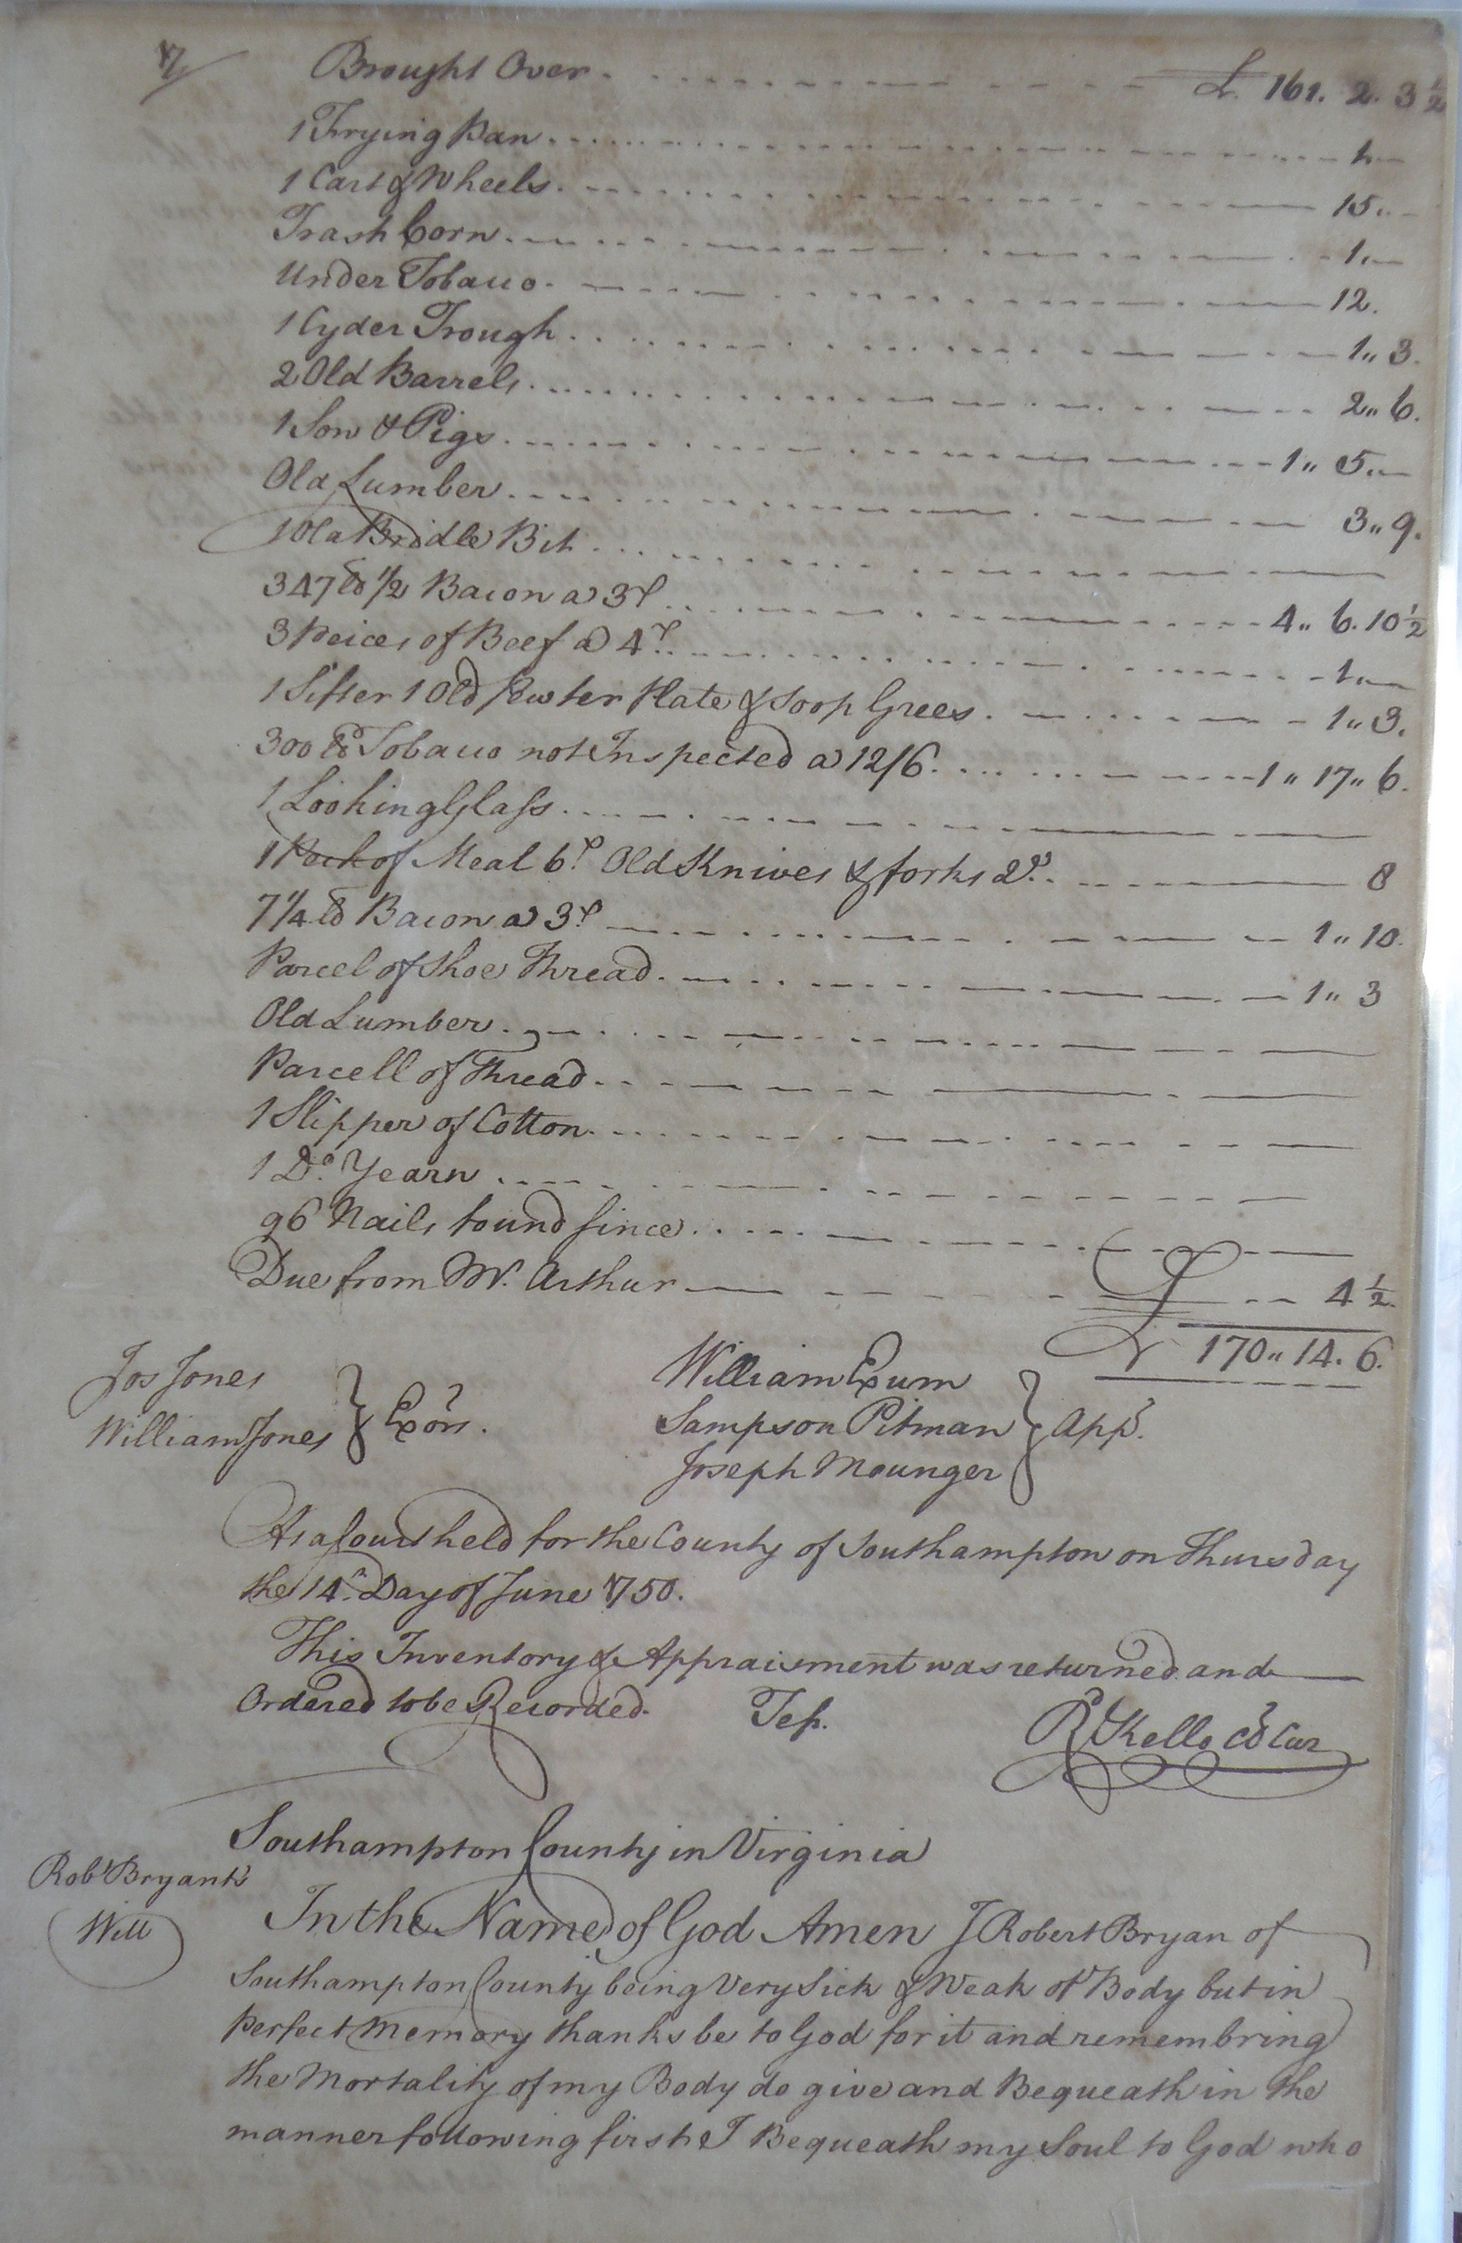 7/ Brought Over . £ 161. 2. 3 ½
1 Frying Pan 1
1 Cart & Wheels 15
Trash Corn 1
Under Tobacco 12.
1 Cyder Trough 1,, 3.
2 Old Barrels 2,, 6.
1 Sow & Pigs 1,, 5
Old Lumber 3,, 9.
1 Old Bridle Bit
347 lb ½ Bacon a 3d 4,, 6. 10 ½
3 Peices of Beef a 4d 1
1 Sifter 1 Old Pewter Plate & Soop Grees 1,, 3.
300 lb Tobacco not Inspected a 12/6 1,, 17,, 6.
1 Looking Glass
1 Peck of Meal 6d Old Knives & forks 2d 8
7 ¼ lb Bacon a 3d 1,, 10.
Parcel of Shoe Thread 1,, 3
Old Lumber
Parcell of Thread
1 Slipper of Cotton
1 Do. Yearn
96 Nails found since
Due from Mr. Arthur 4 ½
£ 170,, 14. 6.
Jos Jones
William Jones } Exors.
William Exum
Sampson Pitman } Appr.
Joseph Mounger
At a Court held for the County of Southampton on Thursday
the 14th Day of June 1750.
This Inventory & Appraisment was returned and
Ordered to be Recorded. Test.
R Kello Cl Cur
Southampton County in Virginia
Robt Bryant's
Will
In the Name of God Amen I Robert Bryan of
Southampton County being Very Sick & Weak of Body but in
Perfect Memory thanks be to God for it and remembring
the Mortality of my Body do give and Bequeath in the
manner following first I Bequeath my Soul to God who